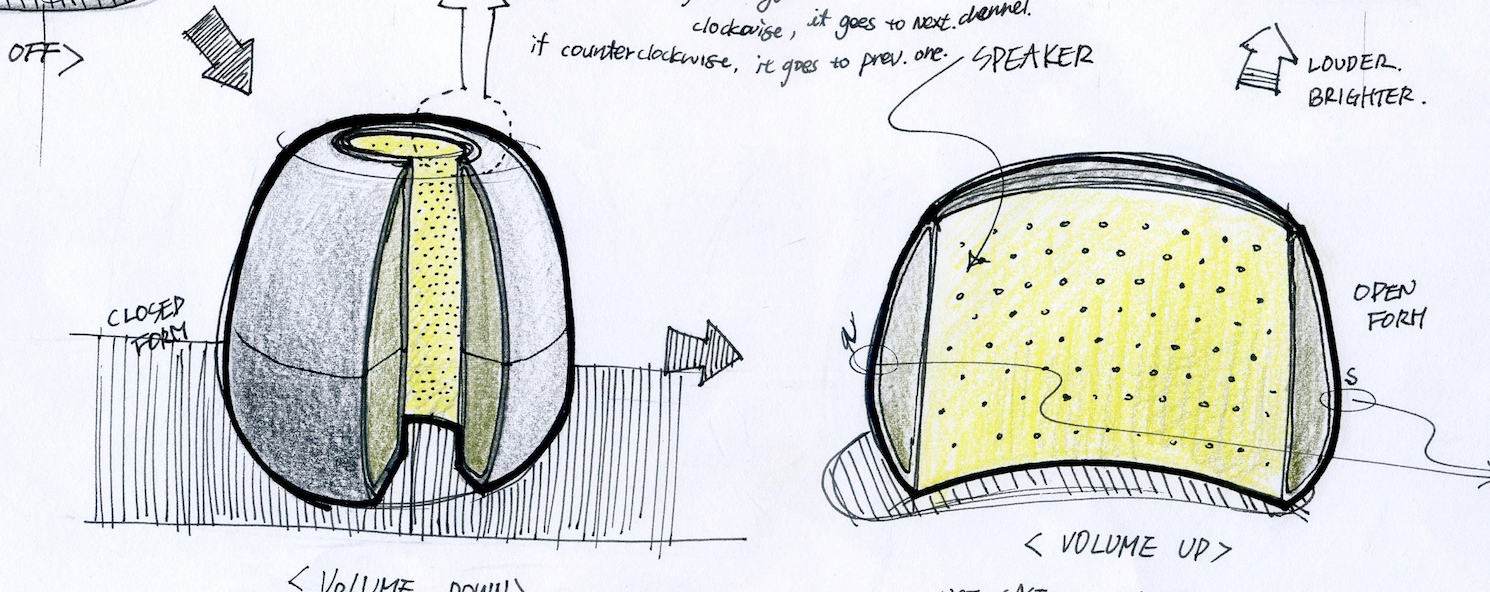 OFF>
clockwise, it goes to next channel.
if counterclockwise, it goes to prev. one.
SPEAKER
LOUDER.
BRIGHTER.
CLOSED
FORM
OPEN
FORM
S
< VOLUME UP>
< VOLUME DOWN>